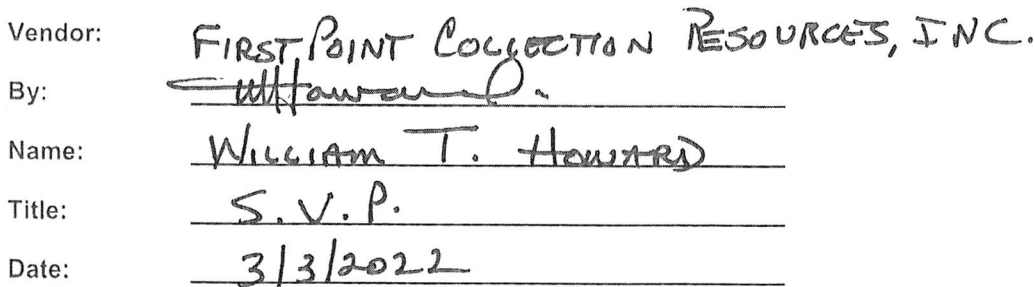 Vendor: FIRSTPOINT COLLECTION RESOURCES, INC.
By: WHoward
Name: WILLIAM T. HOWARD
Title: S.V.P.
Date: 3/3/2022